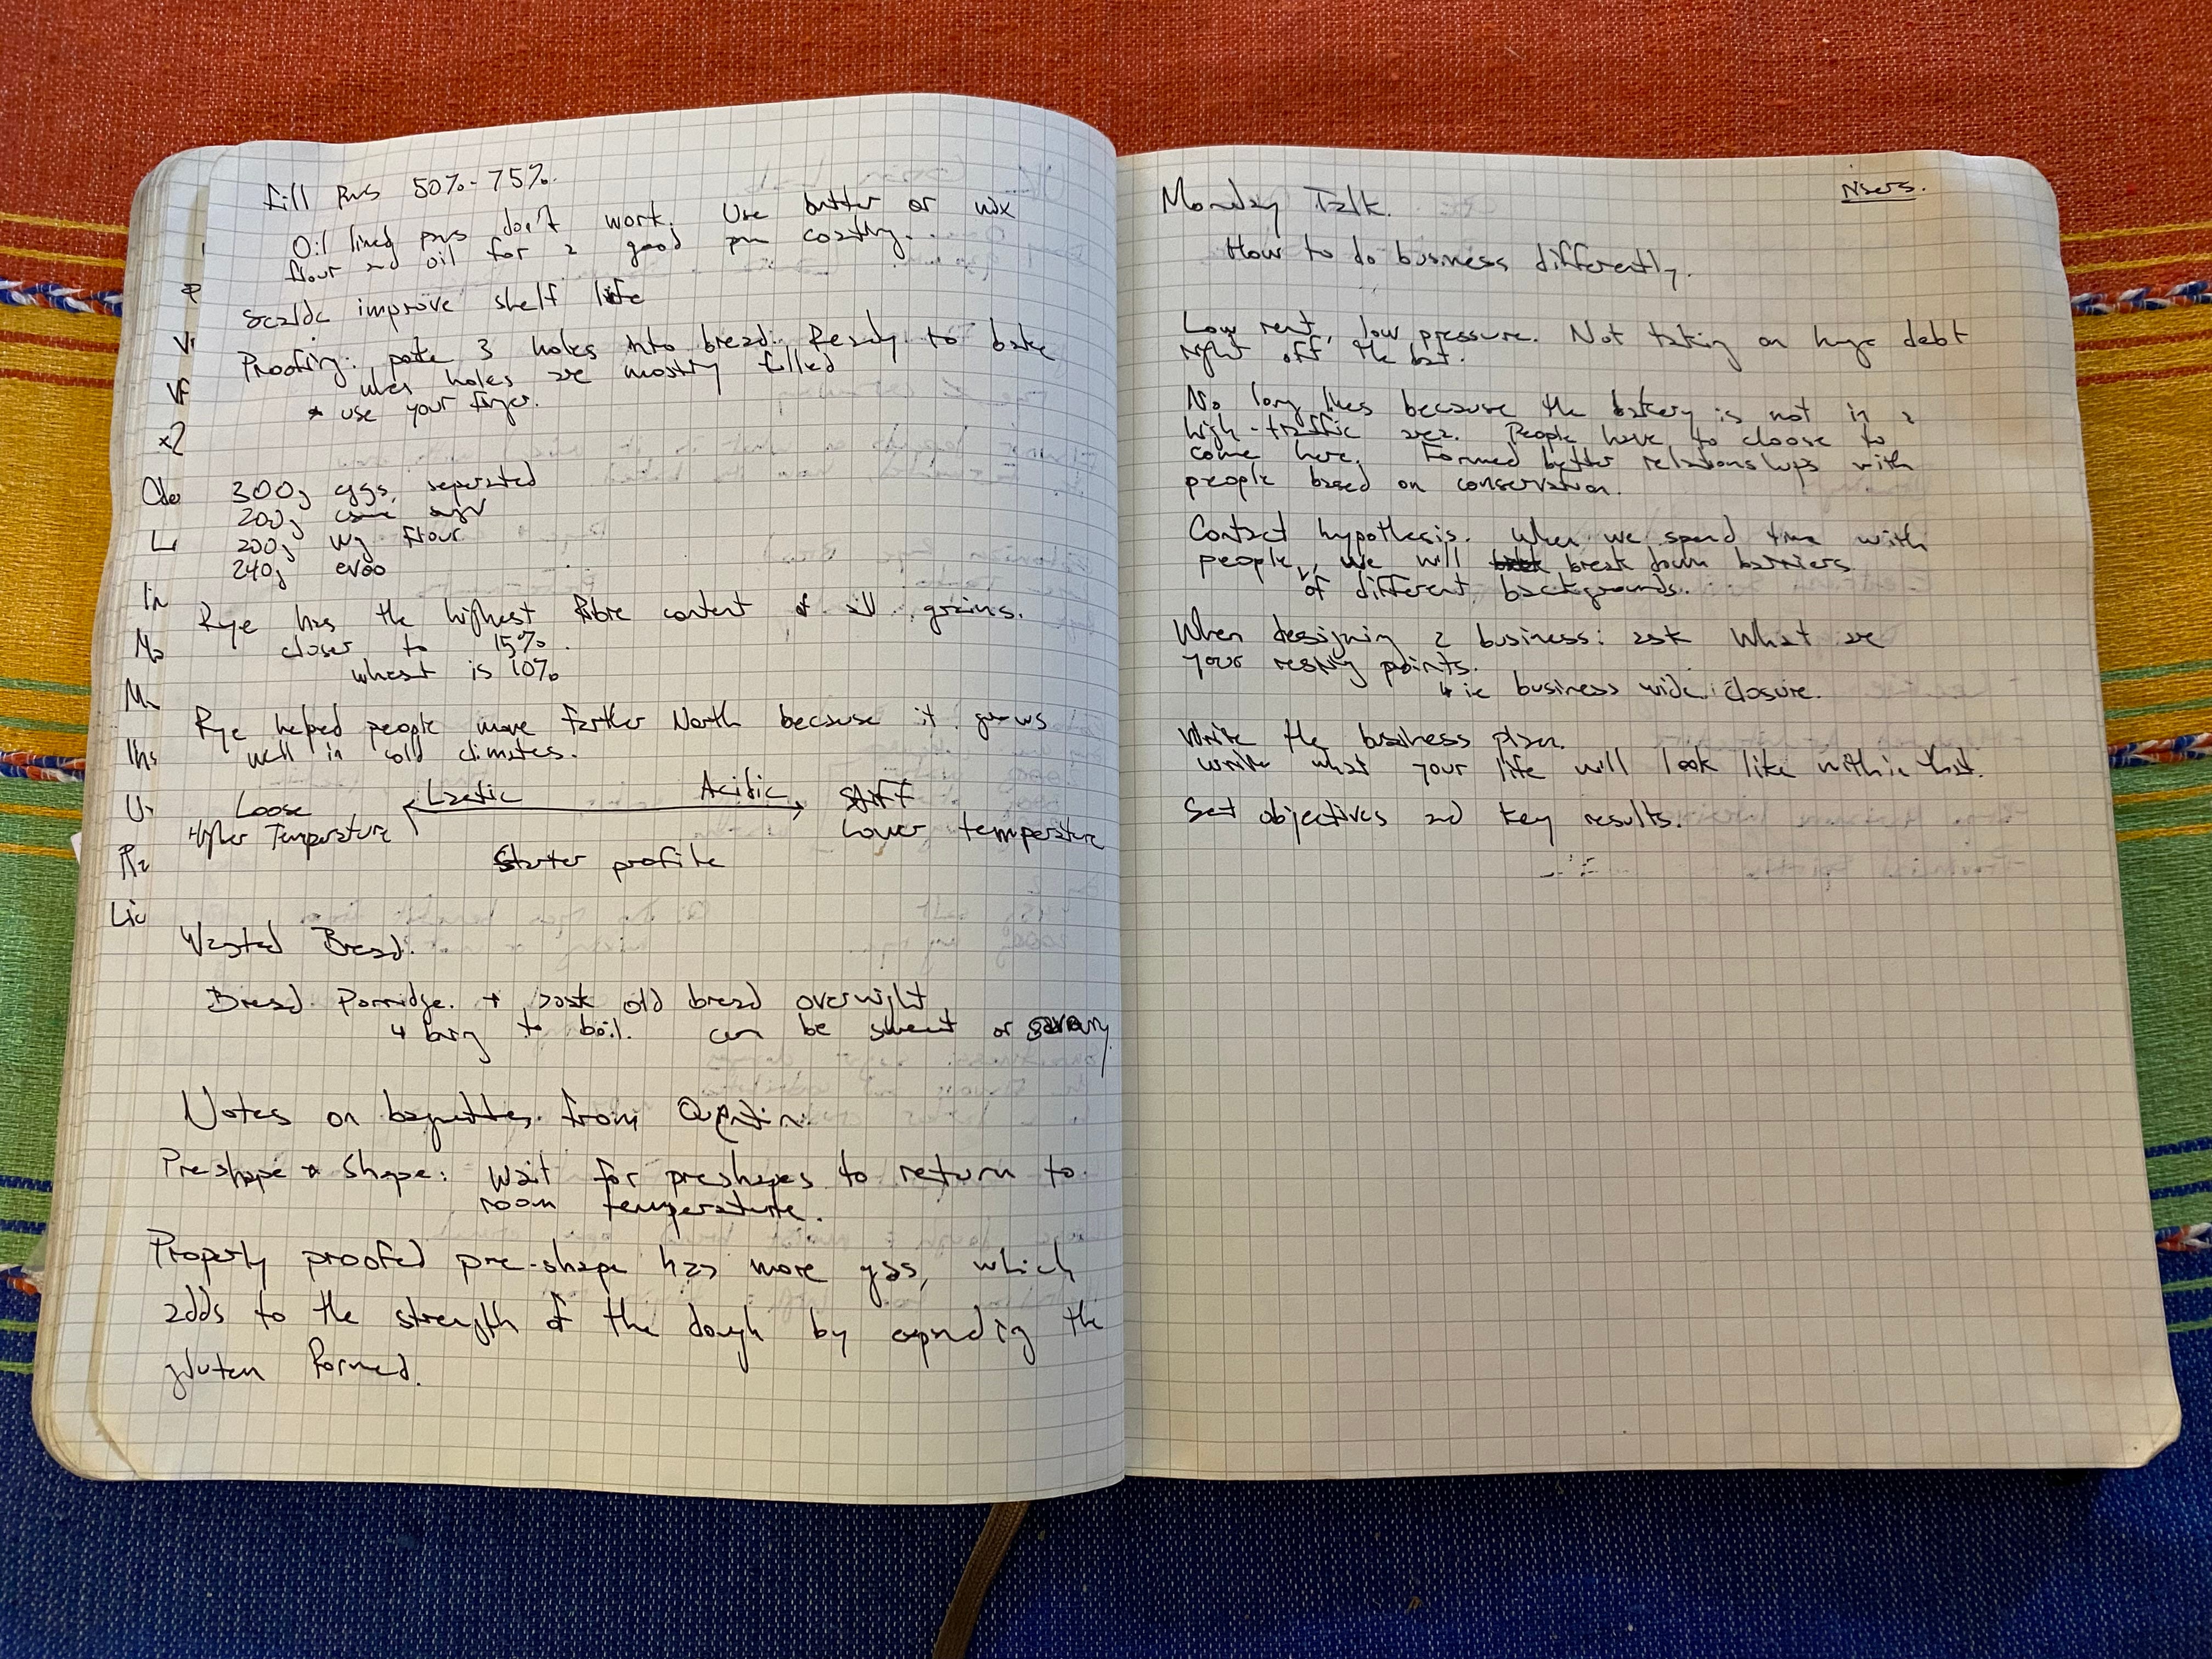 fill pans 50%-75%.
Oil lined pans don't work. Use butter or mix
flour and oil for a good pan coating.
Scalds improve shelf life
Proofing: poke 3 holes into bread. Ready to bake
when holes are mostly filled
* use your finger.
300g eggs, seperated
200g cane sugar
200g wg flour
240g evoo
Rye has the highest fibre content of all grains.
closer to 15%.
wheat is 10%
Rye helped people move farther North because it grows
well in cold climates.
Loose Lactic Acitic Stiff
Higher Temperature Lower temperature
Starter profile
Wasted Bread.
Bread Porridge. → soak old bread overnight
↳ bring to boil. can be sweet or savory.
Notes on baguettes from Quentin:
Pre-shape → Shape: Wait for preshapes to return to
room temperature.
Properly proofed pre-shape has more gas, which
adds to the strength of the dough by expanding the
gluten formed.
x2
Monday Talk.
How to do business differently.
Low rent, low pressure. Not taking on huge debt
right off the bat.
No long lines because the bakery is not in a
high-traffic area. People have to choose to
come here. Formed better relationships with
people based on conservation.
Contact hypothesis. When we spend time with
people, we will break down barriers.
of different backgrounds.
When designing a business: ask What are
your resting points.
↳ ie business wide closure.
Write the business plan.
write what your life will look like within that.
Set objectives and key results.